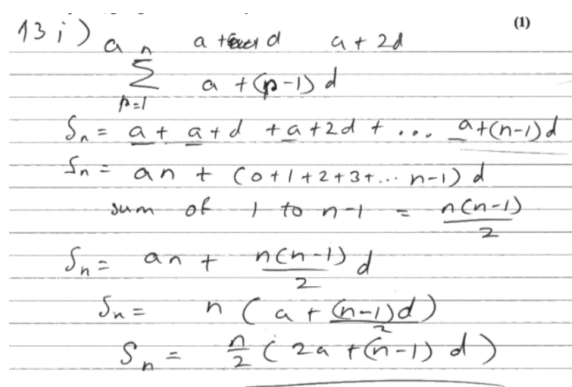 (1)
13 i) a a + d a + 2d
n
∑ a + (p-1) d
p=1
Sn = a + a + d + a + 2d + ... a + (n-1) d
Sn = an + (0+1+2+3+... n-1) d
sum of 1 to n-1 = n(n-1)/2
Sn = an + n(n-1)/2 d
Sn = n ( a + (n-1)d/2 )
Sn = n/2 ( 2a + (n-1) d )